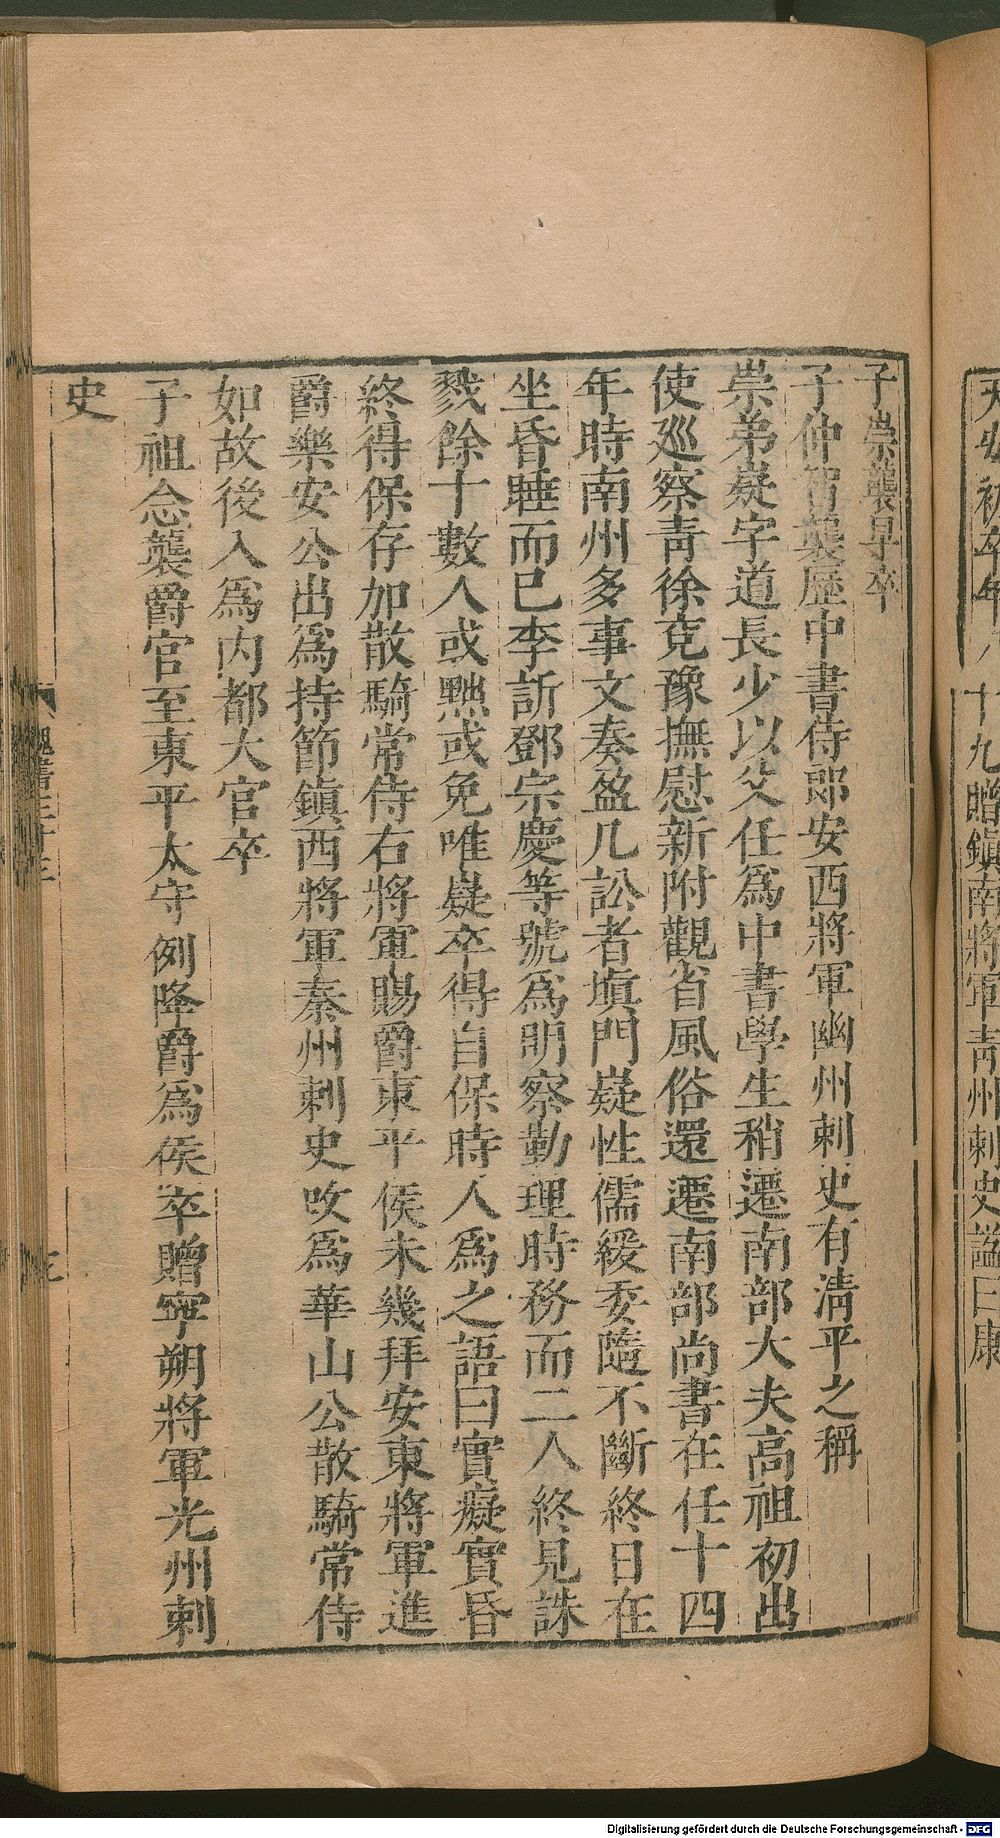 天安初卒年八十九贈鎮南將軍青州刺史諡曰康
子崇襲早卒
子仲智襲歷中書侍郎安西將軍幽州刺史有清平之稱
崇弟嶷字道長少以父任爲中書學生稍遷南部大夫高祖初出
使巡察青徐兗豫撫慰新附觀省風俗還遷南部尚書在任十四
年時南州多事文奏盈几訟者塡門嶷性儒緩委隨不斷終日在
坐昏睡而已李訢鄧宗慶等號爲明察勤理時務而二人終見誅
戮餘十數人或黜或免唯嶷卒得自保時人爲之語曰實癡實昏
終得保存加散騎常侍右將軍賜爵東平侯未幾拜安東將軍進
爵樂安公出爲持節鎮西將軍秦州刺史改爲華山公散騎常侍
如故後入爲内都大官卒
子祖念襲爵官至東平太守例降爵爲侯卒贈寧朔將軍光州刺
史
魏書三十三
Digitalisierung gefördert durch die Deutsche Forschungsgemeinschaft - DFG